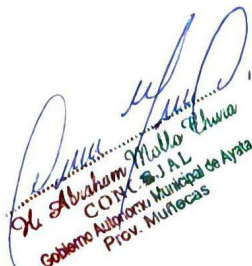 H. Abraham Mollo Chura
CONCEJAL
Gobierno Autonomo Municipal de Ayata
Prov. Muñecas